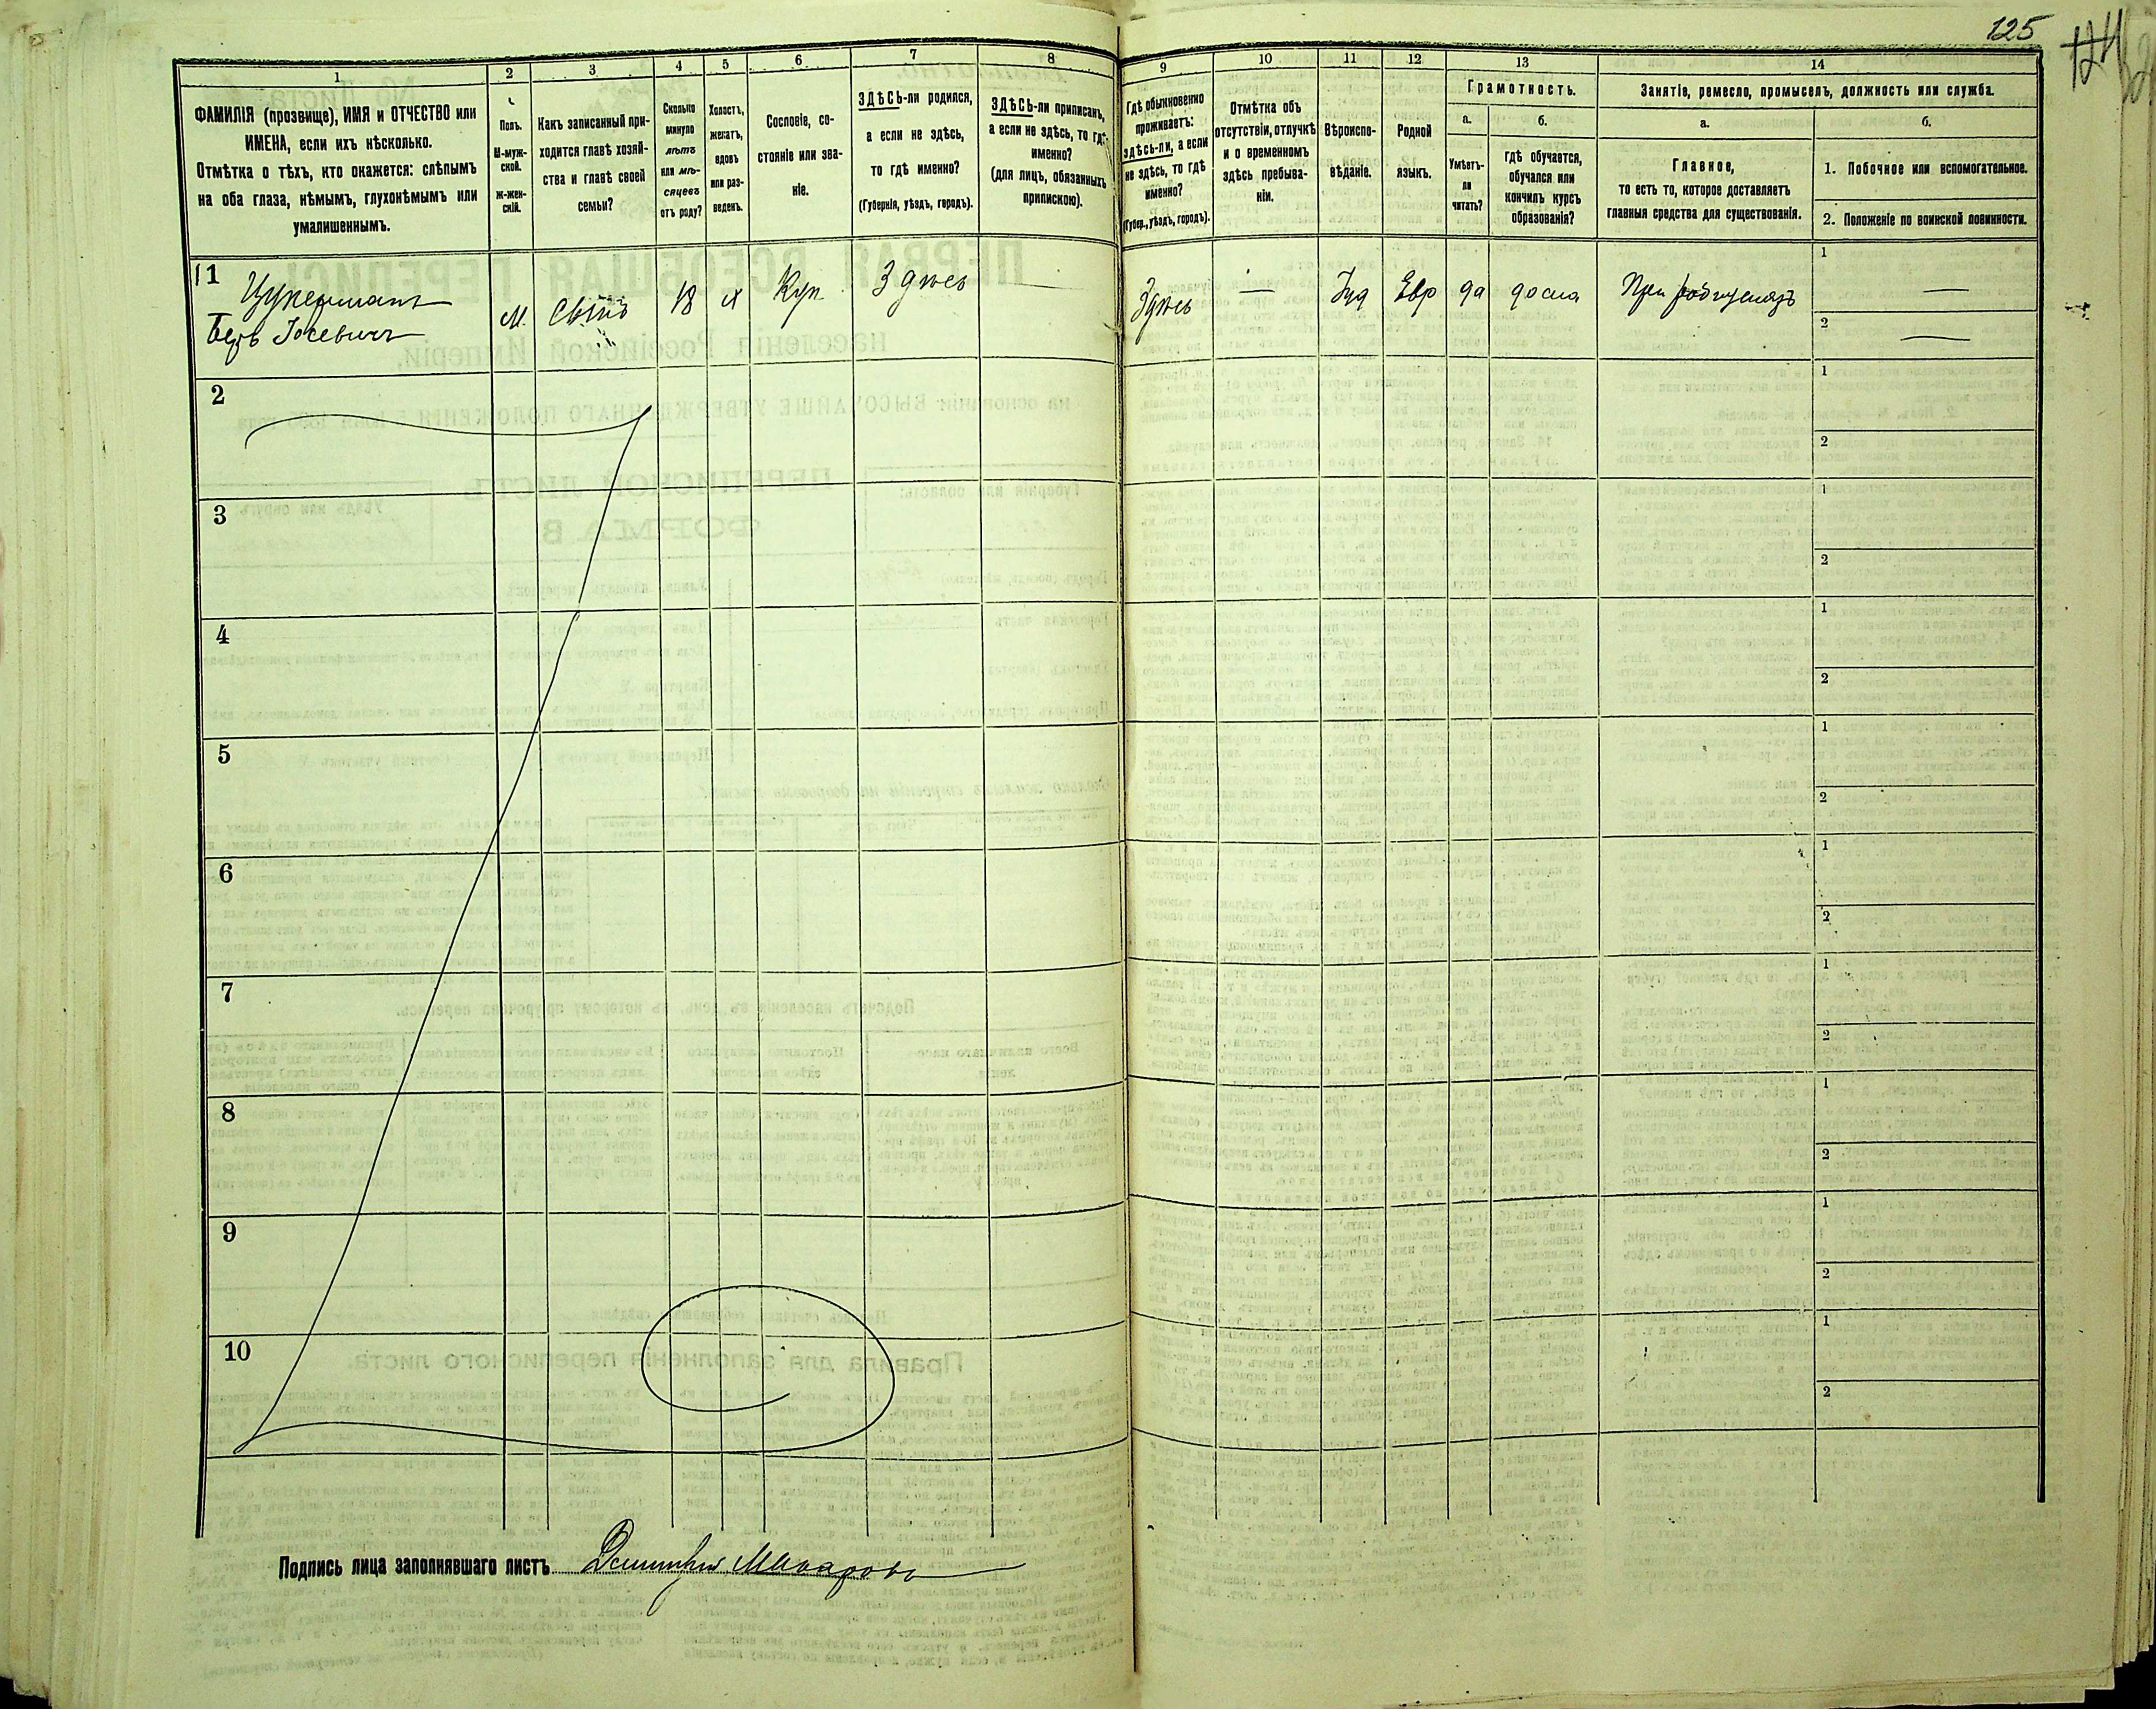 125
1
2
3
4
5
6
7
8
9
10
11
12
13
14
ФАМИЛІЯ (прозвище), ИМЯ и ОТЧЕСТВО или
ИМЕНА, если ихъ нѣсколько.
Отмѣтка о тѣхъ, кто окажется: слѣпымъ
на оба глаза, нѣмымъ, глухонѣмымъ или
умалишеннымъ.
Полъ.
М-муж-
ской.
Ж-жен-
скій.
Какъ записанный при-
ходится главѣ хозяй-
ства и главѣ своей
семьи?
Сколько
минуло
лѣтъ
или мѣ-
сяцевъ
отъ роду?
Холостъ,
женатъ,
вдовъ
или раз-
веденъ.
Сословіе, со-
стояніе или зва-
ніе.
ЗДѢСЬ-ли родился,
а если не здѣсь,
то гдѣ именно?
(Губернія, уѣздъ, городъ).
ЗДѢСЬ-ли приписанъ,
а если не здѣсь, то гдѣ
именно?
(для лицъ, обязанныхъ
припискою).
Гдѣ обыкновенно
проживаетъ:
здѣсь-ли, а если
не здѣсь, то гдѣ
именно?
(Губер., уѣздъ, городъ).
Отмѣтка объ
отсутствіи, отлучкѣ
и о временномъ
здѣсь пребыва-
ніи.
Вѣроиспо-
вѣданіе.
Родной
языкъ.
Грамотность.
а.
Умѣетъ-
ли
читать?
б.
гдѣ обучается,
обучался или
кончилъ курсъ
образованія?
Занятіе, ремесло, промыселъ, должность или служба.
а.
Главное,
то есть то, которое доставляетъ
главныя средства для существованія.
б.
1. Побочное или вспомогательное.
2. Положеніе по воинской повинности.
1
Цукерманъ
Беръ Іосевичъ
М.
Сынъ
18
х
Куп.
Здѣсь
—
Здѣсь
—
Іуд
Евр
да
дома
При родителяхъ
1
—
2
—
2
1
2
3
1
2
4
1
2
5
1
2
6
1
2
7
1
2
8
1
2
9
1
2
10
1
2
Подпись лица заполнявшаго листъ Дмитрій Макаровъ